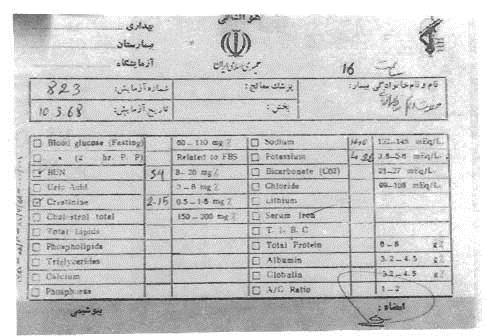 هوالشافی
بهداری
بیمارستان
آزمایشگاه
جمهوری اسلامی ایران
ساعت 16
نام و نام خانوادگی بیمار:
پزشک معالج:
بخش:
شماره آزمایش: 823
تاریخ آزمایش: 10.3.68
Blood glucose (Fasting) 60 - 110 mg % Sodium 132-145 mEq/L.
" (2 hr. P. P) Related to FBS Potassium 3.5-5.6 mEq/L.
BUN 54 8 - 20 mg % Bicarbonate (Co2) 21-27 mEq/L.
Uric Acid 2-8 mg % Chloride 99-108 mEq/L.
Creatinine 2.15 0.5-1.5 mg % Lithium
Cholestrol total 150-200 mg % Serum Iron
Total Lipids T. I. B. C
Phospholipids Total Protein 6-8 g%
Triglycerides Albumin 3.2-4.5 g%
Calcium Globulin 3.2-4.5 g%
Phosphorus A/G Ratio 1-2
بیوشیمی
امضاء: